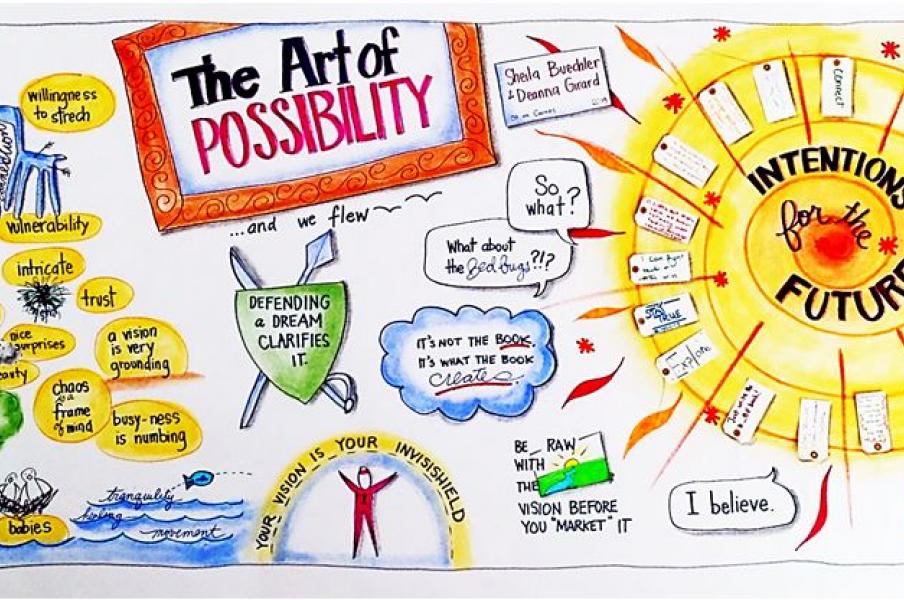 willingness
to strech
vulnerability
intricate
trust
nice
surprises
a vision
is very
grounding
chaos
is a
frame
of mind
busy-ness
is numbing
babies
tranquility
healing
movement
The Art of
POSSIBILITY
Sheila Buechler
& Deanna Girard
...and we flew
DEFENDING
a DREAM
CLARIFIES
IT.
So
what?
What about
the Bed Bugs?!?
IT'S NOT THE BOOK.
IT'S WHAT THE BOOK
Creates.
YOUR VISION IS YOUR INVISISHIELD
BE RAW
WITH
THE
VISION BEFORE
YOU "MARKET" IT
I believe.
INTENTIONS
for the
FUTURE
Connect
STAY
TRUE
Explore